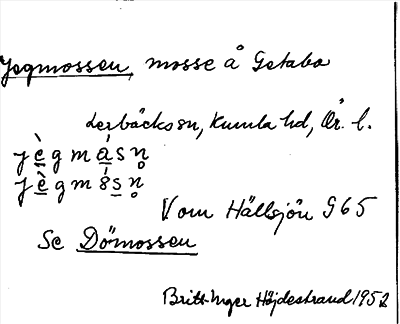 Jegmossen, mosse å Getabo
Lerbäcks sn, Kumla hd, Ör. l.
jè̱gmá̱sn̥
jè̱gmós̱n̥
Vom Hällsjön 965
Se Dömossen
Britt-Inger Höjdestrand 1952